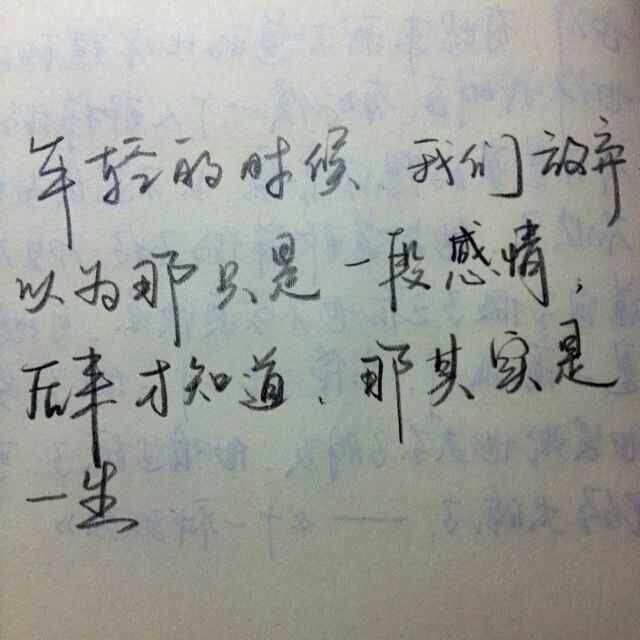 年轻的时候、我们放弃
以为那只是一段感情，
后来才知道、那其实是
一生